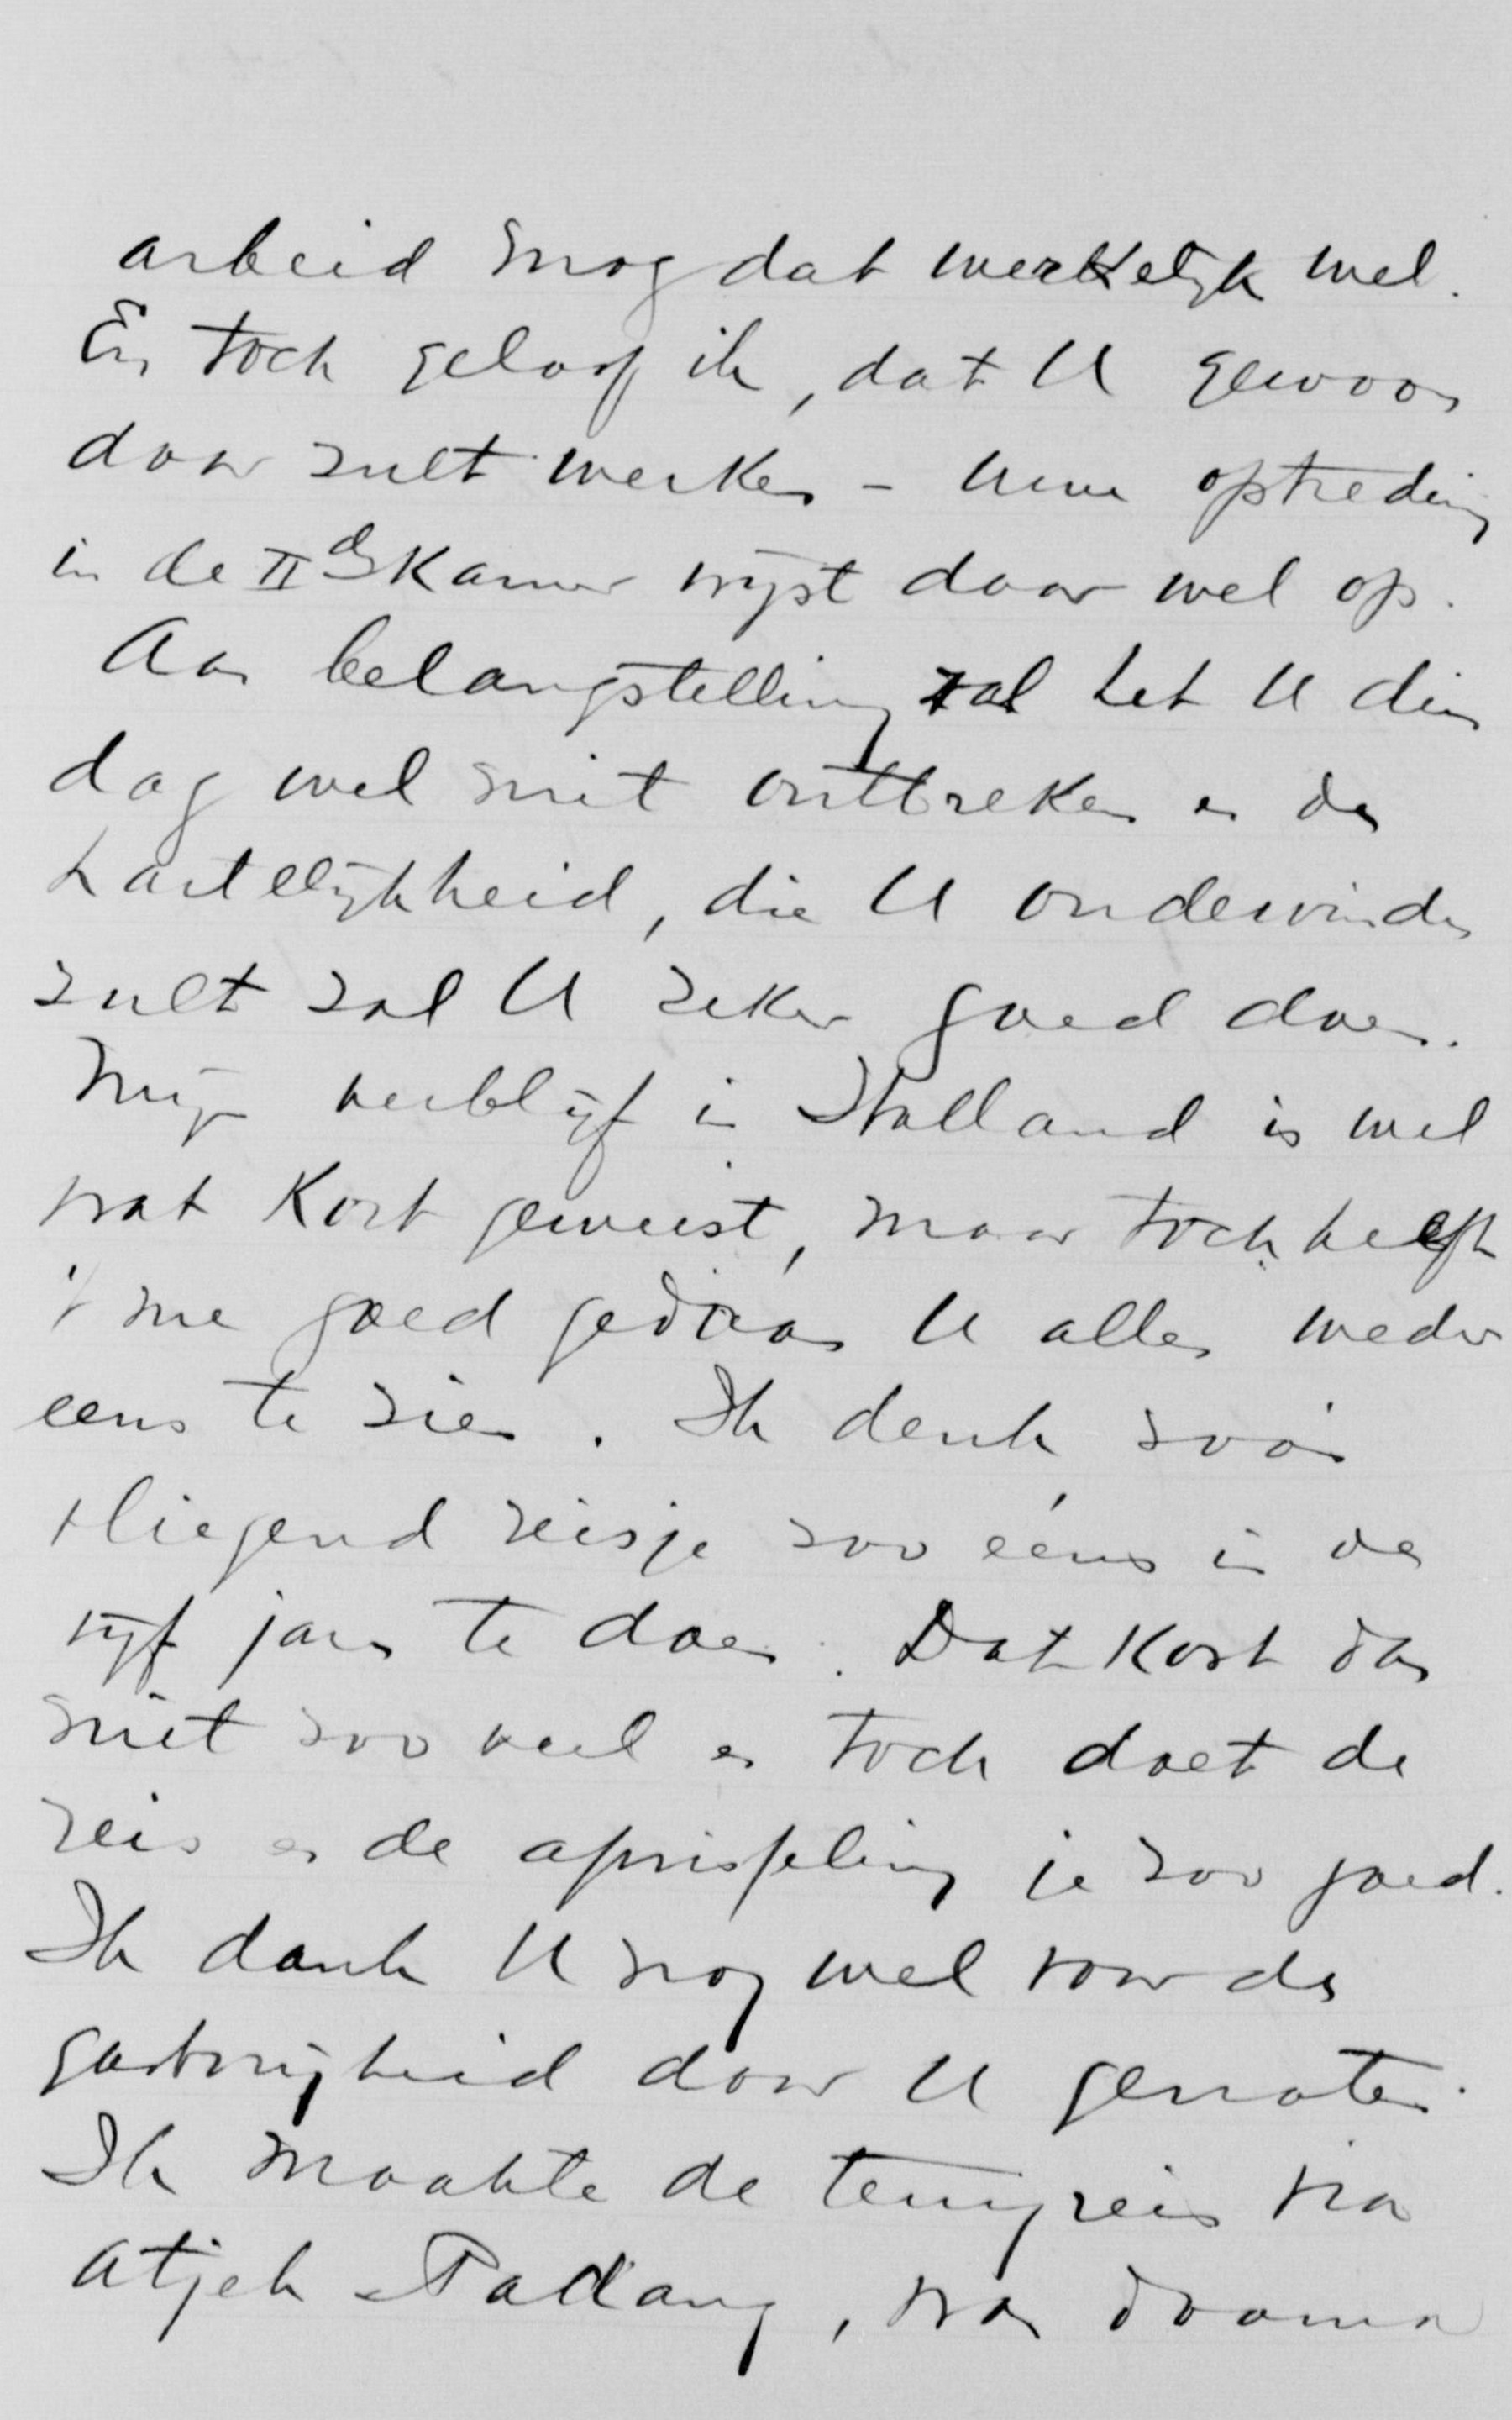 arbeid mog dat werkelijk wel.
En toch geloof ik, dat U gewoon
door zult werken - Uwe optreding
in de IIde Kamer wijst daar wel op.
Aan belangstelling zal het U dien
dag wel niet ontbreken en de
hartelijkheid, die U ondervinden
zult zal U zeker goed doen.
Mijn verblijf in Holland is wel
wat kort geweest, maar toch heeft
't me goed gedaan U allen weder
eens te zien. Ik denk zóó'n
vliegend reisje zoo ééns in de
vijf jaar te doen. Dat kost dan
niet zoo veel en toch doet de
reis en de afwisseling je zoo goed.
Ik dank U nog wel voor de
gastvrijheid door U genoten.
Ik maakte de terugreis via
Atjeh Padang, was daarna